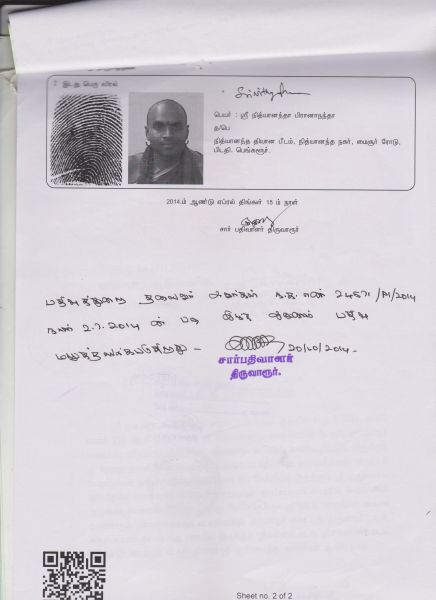 2 இடது பெரு விரல்
பெயர் : ஸ்ரீ நித்யானந்தா பிரானாநந்தா
த/பெ
நித்யானந்த தியான பீடம், நித்யானந்த நகர், மைசூர் ரோடு,
பிடதி. பெங்களூர்.
2014.ம் ஆண்டு ஏப்ரல் திங்கள் 15 ம் நாள்
சார் பதிவாளர் திருவாரூர்
பதிவுத்துறை தலைவர் அவர்கள் ந.க. எண் 24671/P1/2014
நாள் 2.7.2014 ன் படி இந்த ஆவணம் பதிவு
20/10/2014.
சார்பதிவாளர்
திருவாரூர்.
Sheet no. 2 of 2